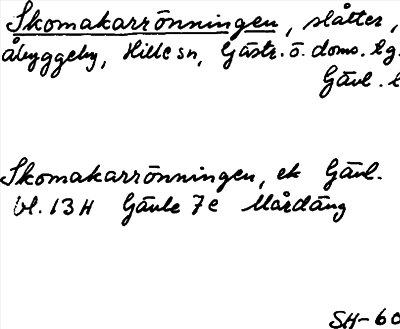 Skomakarrönningen, slåtter,
Åbyggeby, Hille sn, Gästr. ö. doms. lg.
Gävl. l
Skomakarrönningen, ek Gävl.
bl. 13H Gävle 7e Mårdäng
SH-60